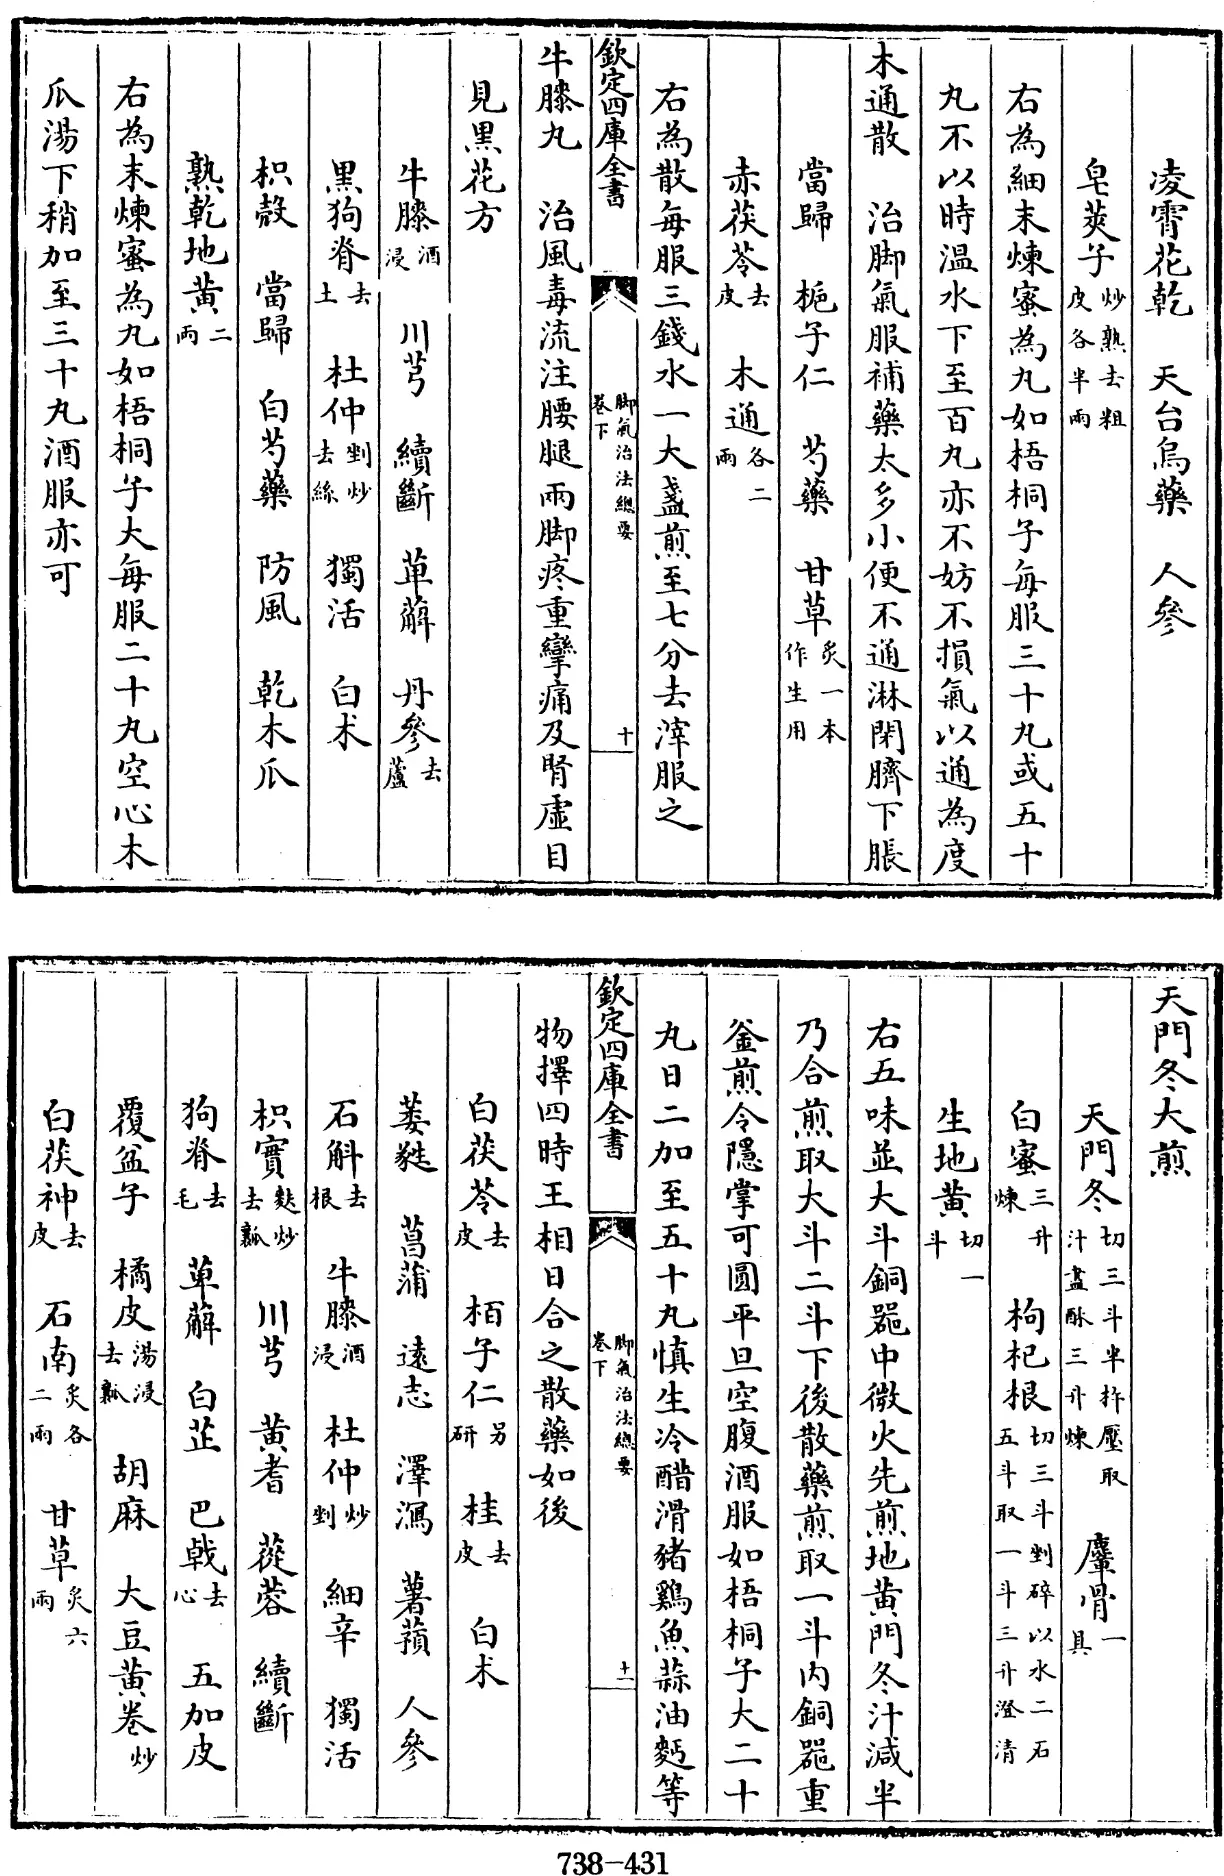 凌霄花乾　天台烏藥　人參
皂莢子炒熟去粗皮各半兩
右為細末煉蜜為丸如梧桐子每服三十丸或五十
丸不以時温水下至百丸亦不妨不損氣以通為度
木通散　治脚氣服補藥太多小便不通淋閉臍下脹
當歸　梔子仁　芍藥　甘草炙一本作生用
赤茯苓去皮　木通各二兩
右為散每服三錢水一大盞煎至七分去滓服之
欽定四庫全書　脚氣治法總要卷下　十
牛膝丸　治風毒流注腰腿兩脚疼重攣痛及腎虛目
見黑花方
牛膝酒浸　川芎　續斷　萆薢　丹參去蘆
黑狗脊去土　杜仲剉炒去絲　獨活　白术
枳殼　當歸　白芍藥　防風　乾木瓜
熟乾地黄二兩
右為末煉蜜為丸如梧桐子大每服二十丸空心木
瓜湯下稍加至三十丸酒服亦可
天門冬大煎
天門冬切三斗半杵壓取汁盡酥三升煉　麞骨一具
白蜜三升煉　枸杞根切三斗剉碎以水二石五斗取一斗三升澄清
生地黄切一斗
右五味並大斗銅器中微火先煎地黄門冬汁減半
乃合煎取大斗二斗下後散藥煎取一斗内銅器重
釜煎令隱掌可圓平旦空腹酒服如梧桐子大二十
丸日二加至五十丸慎生冷醋滑猪鷄魚蒜油麪等
欽定四庫全書　脚氣治法總要卷下　十一
物擇四時王相日合之散藥如後
白茯苓去皮　栢子仁另研　桂去皮　白术
萎蕤　菖蒲　遠志　澤瀉　薯蕷　人參
石斛去根　牛膝酒浸　杜仲炒剉　細辛　獨活
枳實麩炒去瓤　川芎　黄耆　蓯蓉　續斷
狗脊去毛　萆薢　白芷　巴戟去心　五加皮
覆盆子　橘皮湯浸去瓤　胡麻　大豆黄卷炒
白茯神去皮　石南炙各二兩　甘草炙六兩
738-431